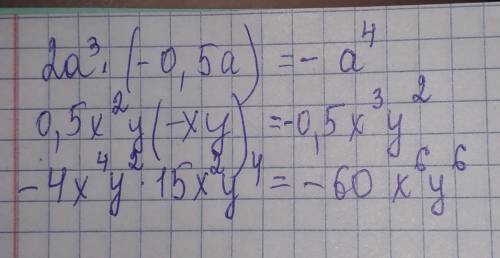 2a³·(-0,5a)=-a⁴
0,5x²y(-xy)=-0,5x³y²
-4x⁴y²·15x²y⁴=-60x⁶y⁶